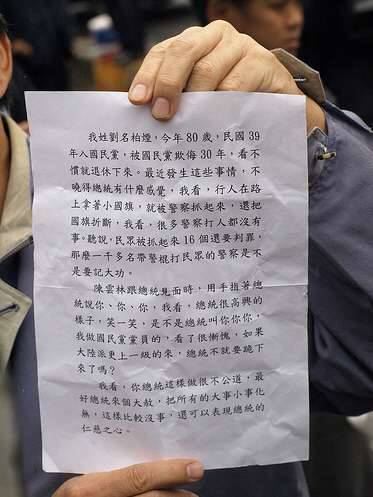 我姓劉名柏煙，今年80歲，民國39
年入國民黨，被國民黨欺侮30年，看不
慣就退休下來。最近發生這些事情，不
曉得總統有什麼感覺，我看，行人在路
上拿著小國旗，就被警察抓起來，還把
國旗折斷，我看，很多警察打人都沒有
事。聽說，民眾被抓起來16個還要判罪，
那麼一千多名帶警棍打民眾的警察是不
是要記大功。
陳雲林跟總統見面時，用手指著總
統說你、你、你，我看，總統很高興的
樣子，笑一笑，是不是總統叫你你你，
我做國民黨黨員的，看了很慚愧，如果
大陸派更上一級的來，總統不就要跪下
來了嗎？
我看，你總統這樣做很不公道，最
好總統來個大赦，把所有的大事小事化
無，這樣比較沒事，還可以表現總統的
仁慈之心。